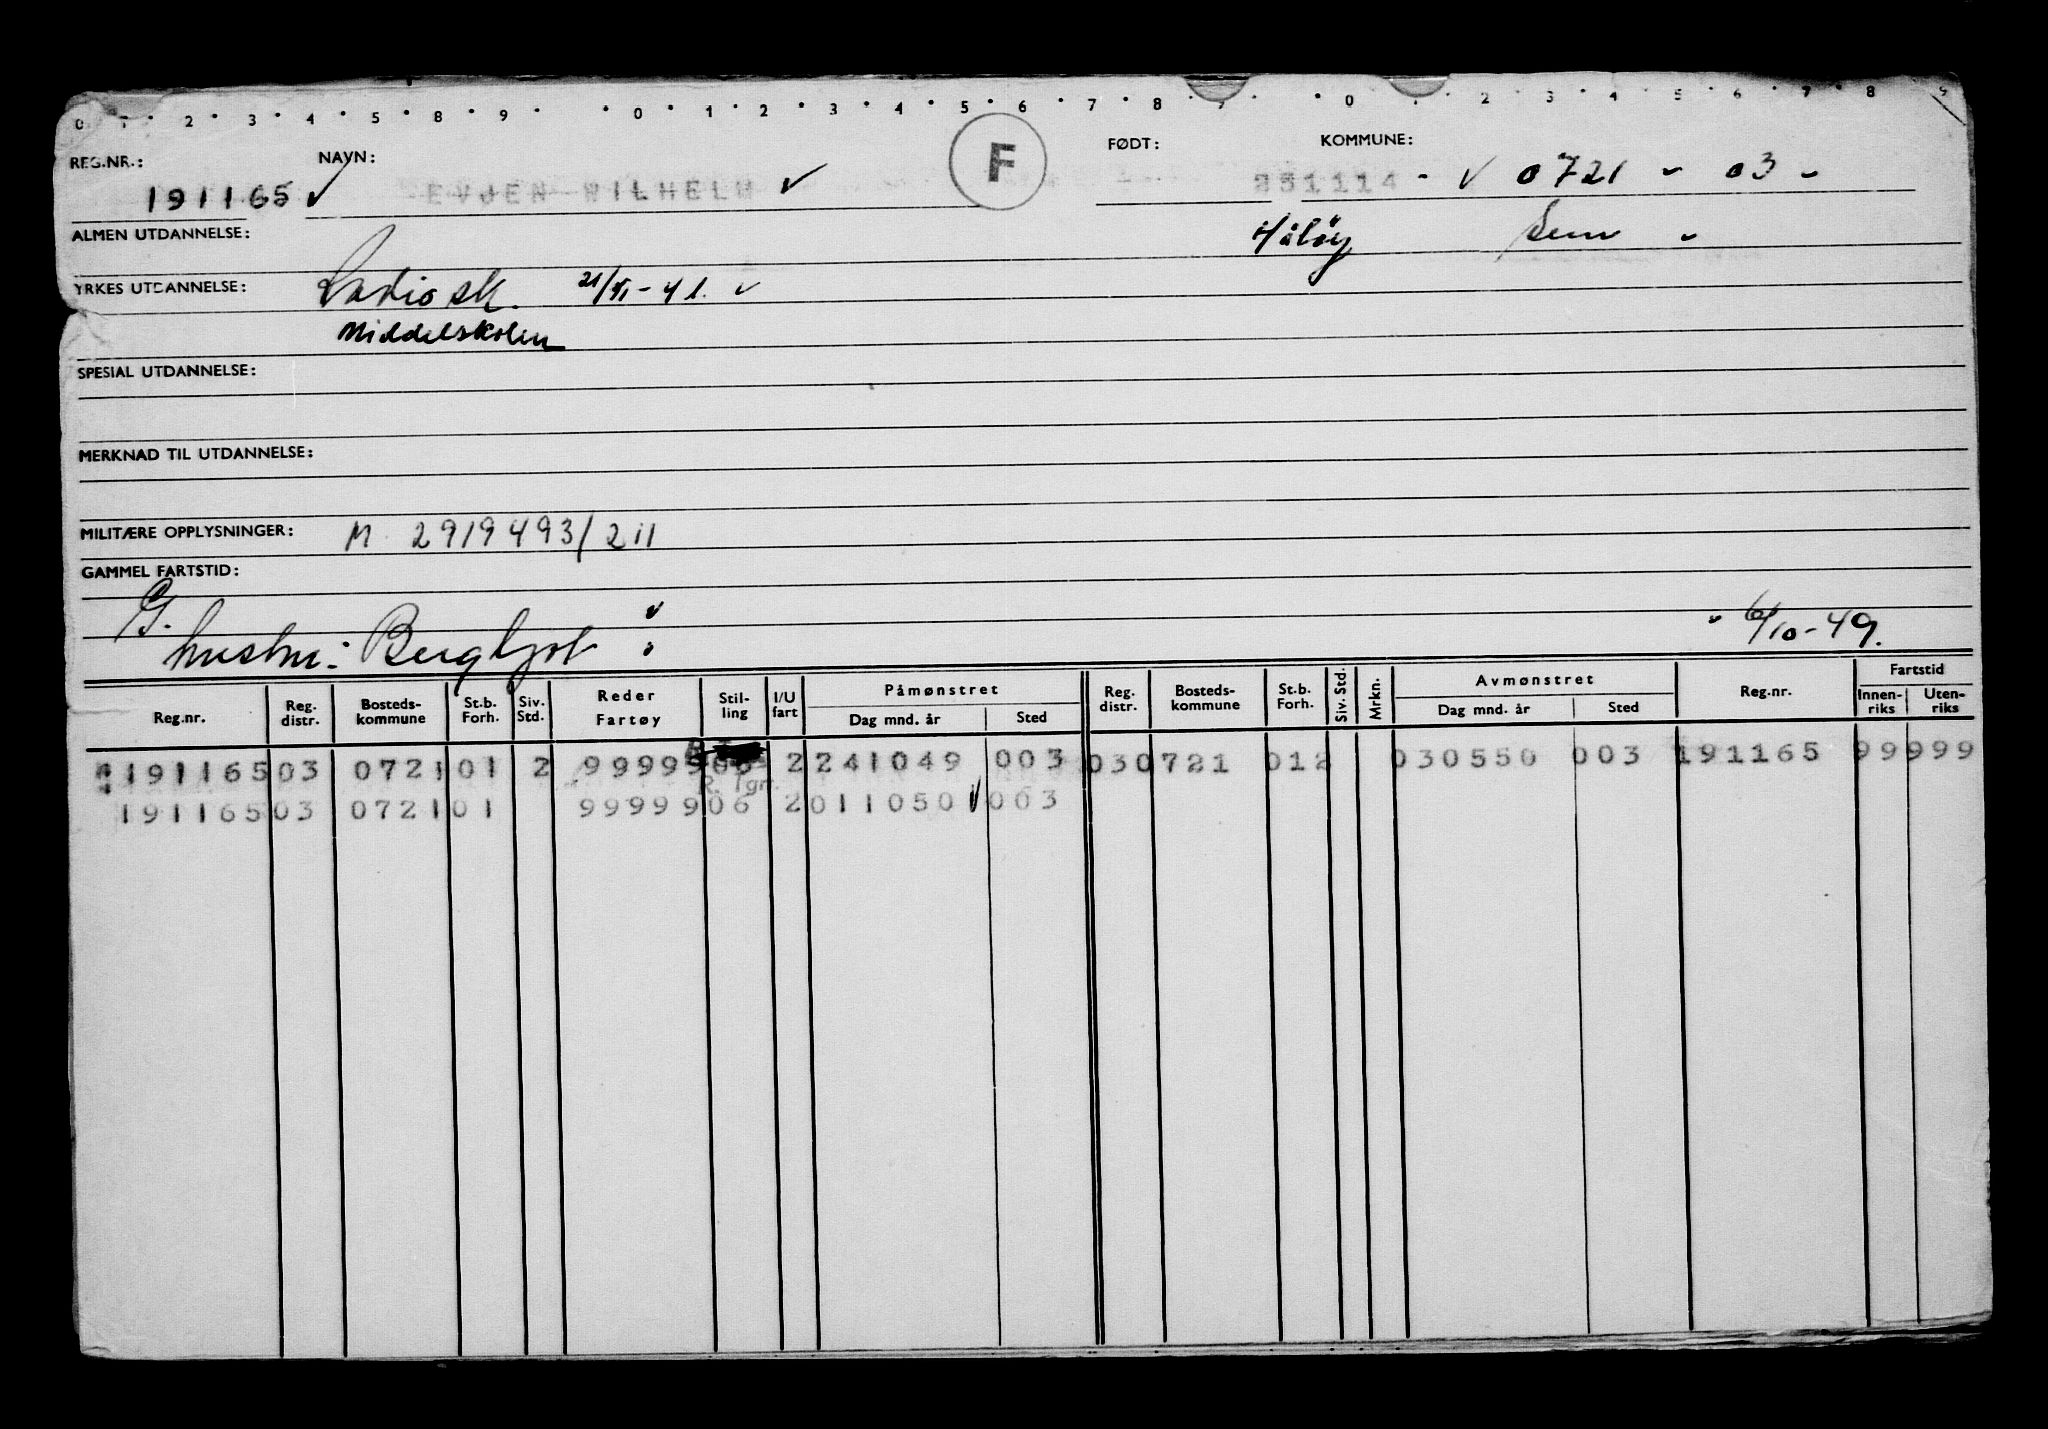 0 1 2 3 4 5 8 9 0 1 2 3 4 5 6 7 8 9 0 1 2 3 4 5 6 7 8 9
REG.NR.: NAVN: F FØDT: KOMMUNE:
191165 ✓ EVJEN WILHELM ✓ 231114 - ✓ 0721 - 03 -
ALMEN UTDANNELSE: Håløy Sem
YRKES UTDANNELSE: Radiosk. 21/VI - 41. ✓
Middelskolen
SPESIAL UTDANNELSE:
MERKNAD TIL UTDANNELSE:
MILITÆRE OPPLYSNINGER: M 2919493/211
GAMMEL FARTSTID:
G.
hustru: Bergljot 6/10-49.
Reg.nr. Reg. distr. Bosteds-kommune St.b. Forh. Siv. Std. Reder Fartøy Stil-ling I/U fart Påmønstret Dag mnd. år Sted Reg. distr. Bosteds-kommune St.b. Forh. Siv. Std. Mrkn. Avmønstret Dag mnd. år Sted Reg.nr. Fartstid Innen-riks Uten-riks
191165 03 0721 01 2 99999 06 2 241049 003 03 0721 012 030550 003 191165 99 999
R. Tgr.
191165 03 0721 01 99999 06 2 011050 ✓ 003